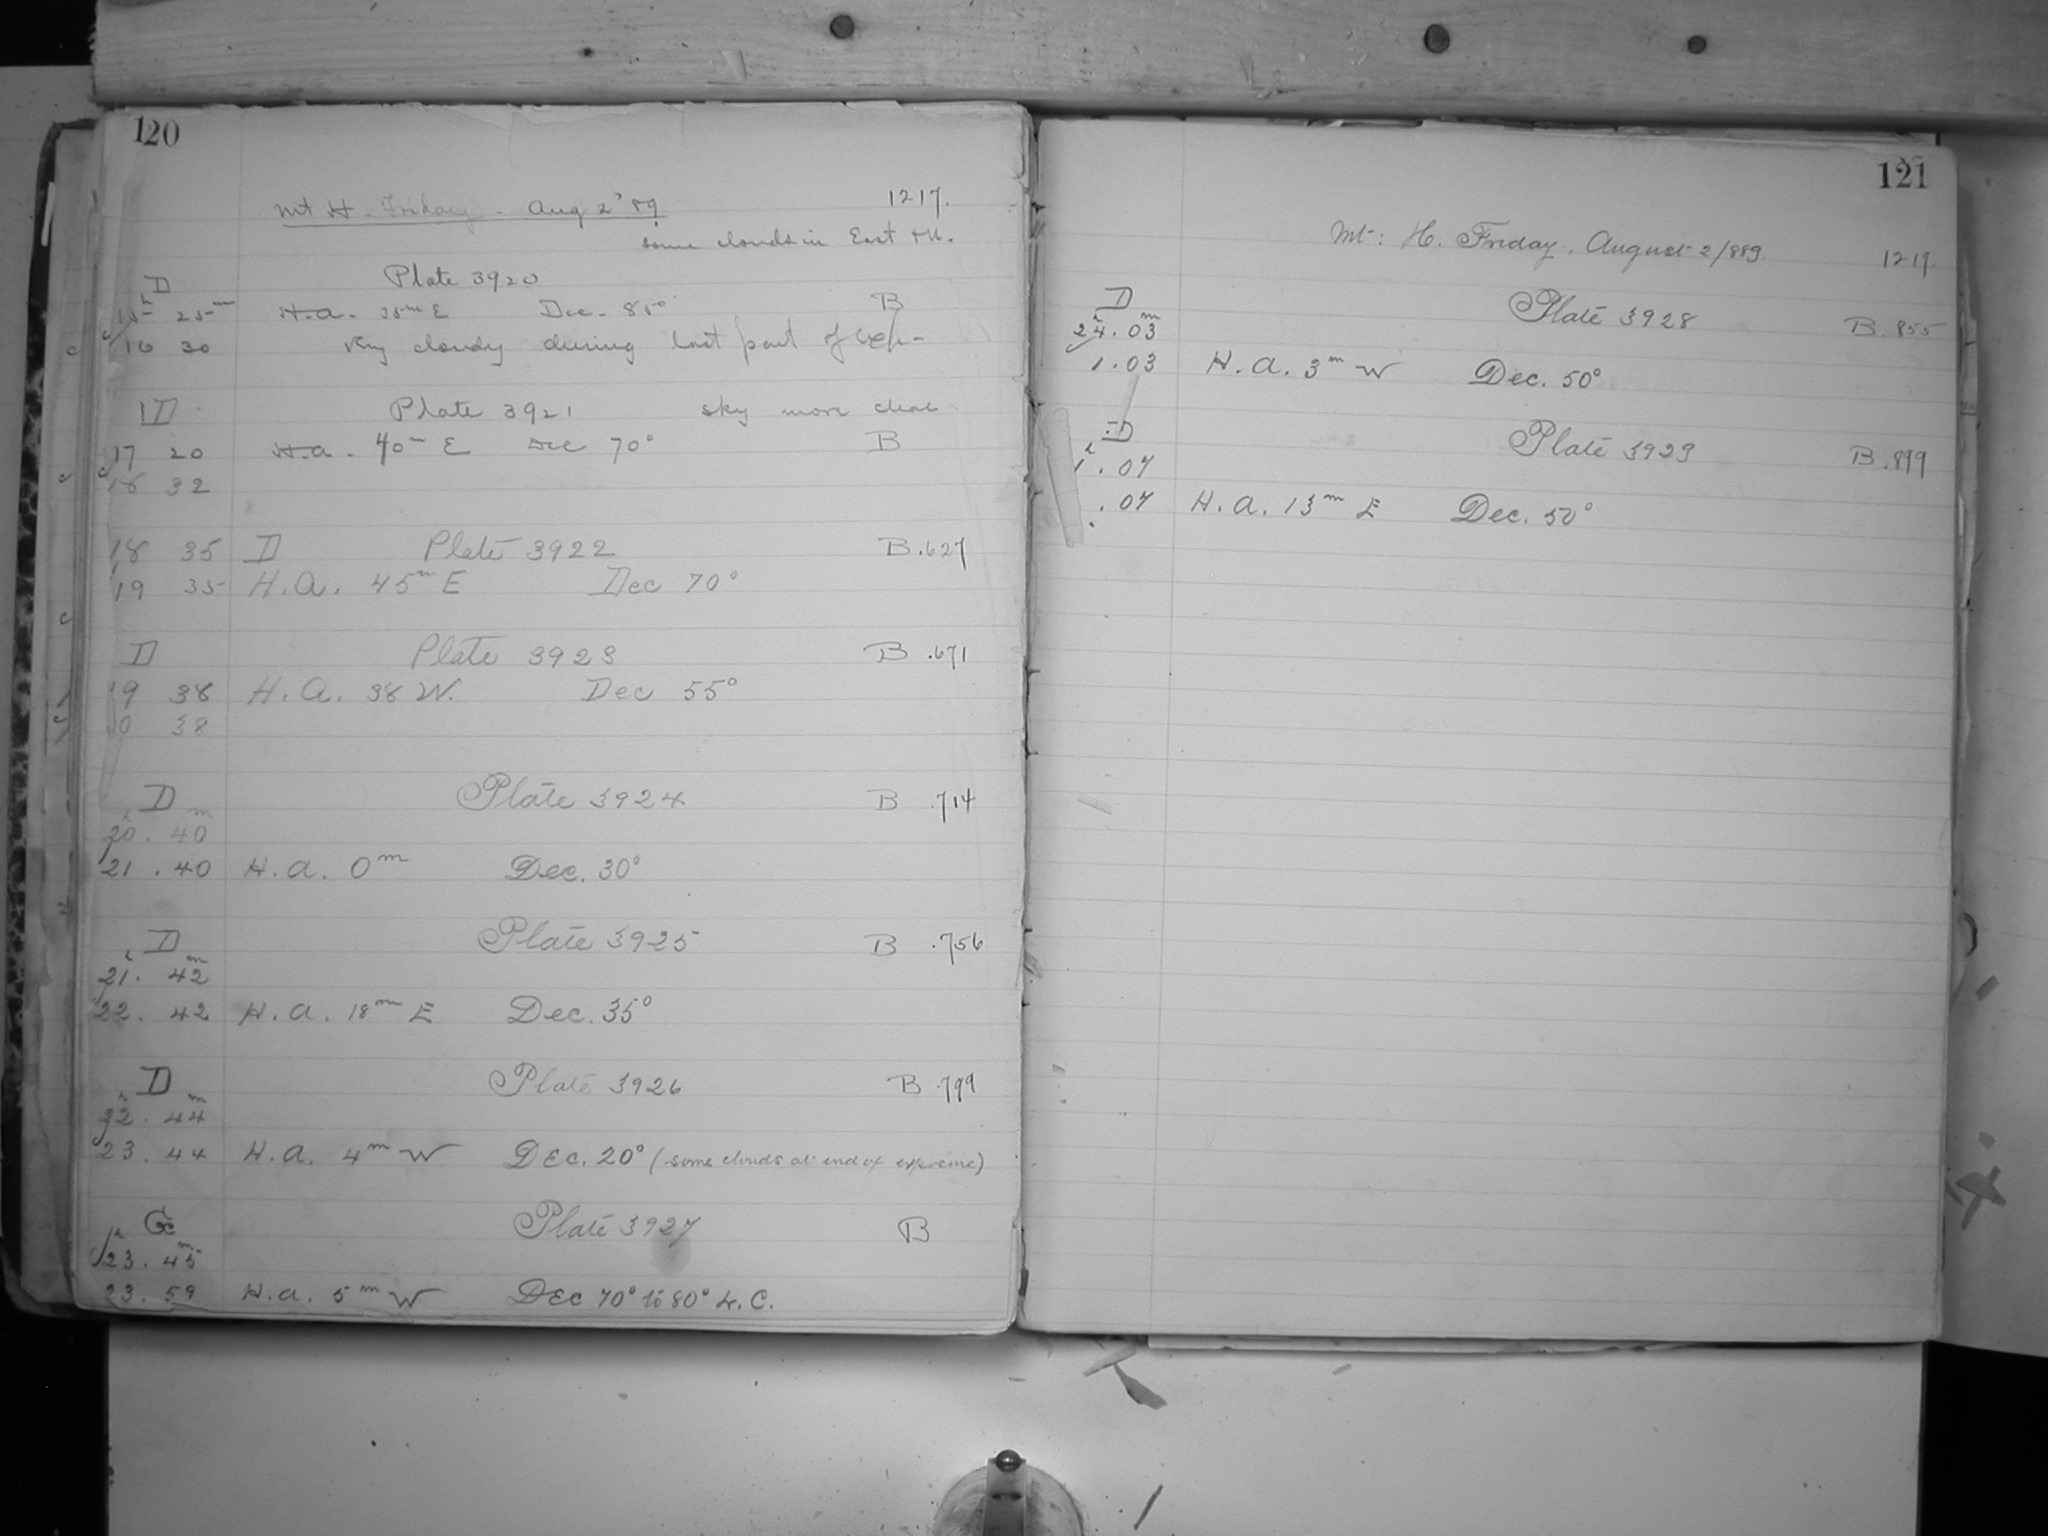 120
Mt H. Friday - Aug 2 '89 1217.
some clouds in East
D Plate 3920
15h 25m H.A. 35m E Dec. 85° B
16 30 Very cloudy during last part of
D Plate 3921 sky more clear
17 20 H.A. 40m E Dec 70° B
18 32
18 35 D Plate 3922 B .627
19 35 H.A. 45m E Dec 70°
D Plate 3923 B .671
19 38 H.A. 38 W. Dec 55°
20 38
D Plate 3924 B .714
20h. 40m
21 . 40 H.A. 0m Dec. 30°
D Plate 3925 B .756
21h. 42m
22. 42 H.A. 18m E Dec. 35°
D Plate 3926 B .799
22h. 44m
23. 44 H.A. 4m W Dec. 20° (some clouds at end of exposure)
Plate 3927 B
23h. 45m
23. 59 H.A. 5m W Dec 70° to 80° L.C.
121
Mt: H. Friday, August 2/889. 1217
D Plate 3928 B .855
24h. 03m
1. 03 H.A. 3m W Dec. 50°
D Plate 3929 B .899
1h. 07
. 07 H.A. 13m E Dec. 50°